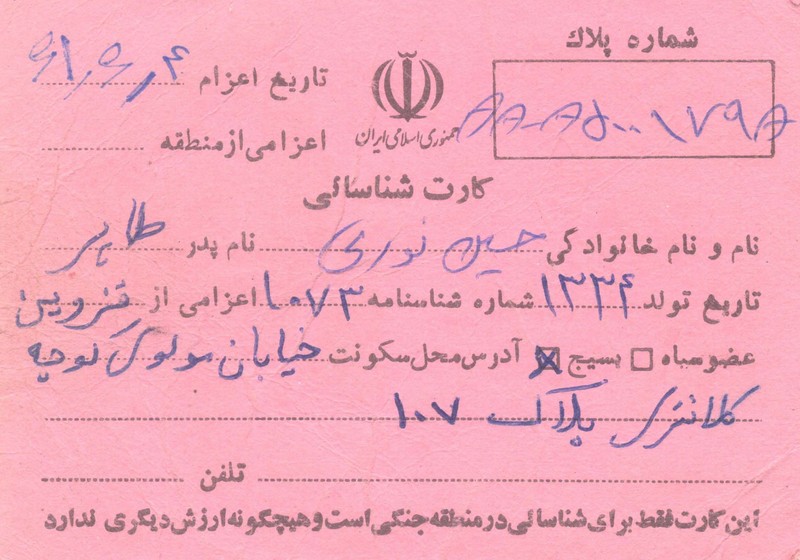 شماره پلاك
AA-A۵۰۰۱۷۹۸
جمهوری اسلامی ایران
تاریخ اعزام ۶۱/۶/۴
اعزامی از منطقه
کارت شناسائی
نام و نام خانوادگی حسین نوری نام پدر طاهر
تاریخ تولد ۱۳۳۴ شماره شناسنامه ۱۰۷۳ اعزامی از قزوین
عضو سپاه بسیج آدرس محل سکونت خیابان مولوی کوچه
کلانتری پلاک ۱۰۷
تلفن
این کارت فقط برای شناسائی در منطقه جنگی است و هیچگونه ارزش دیگری ندارد